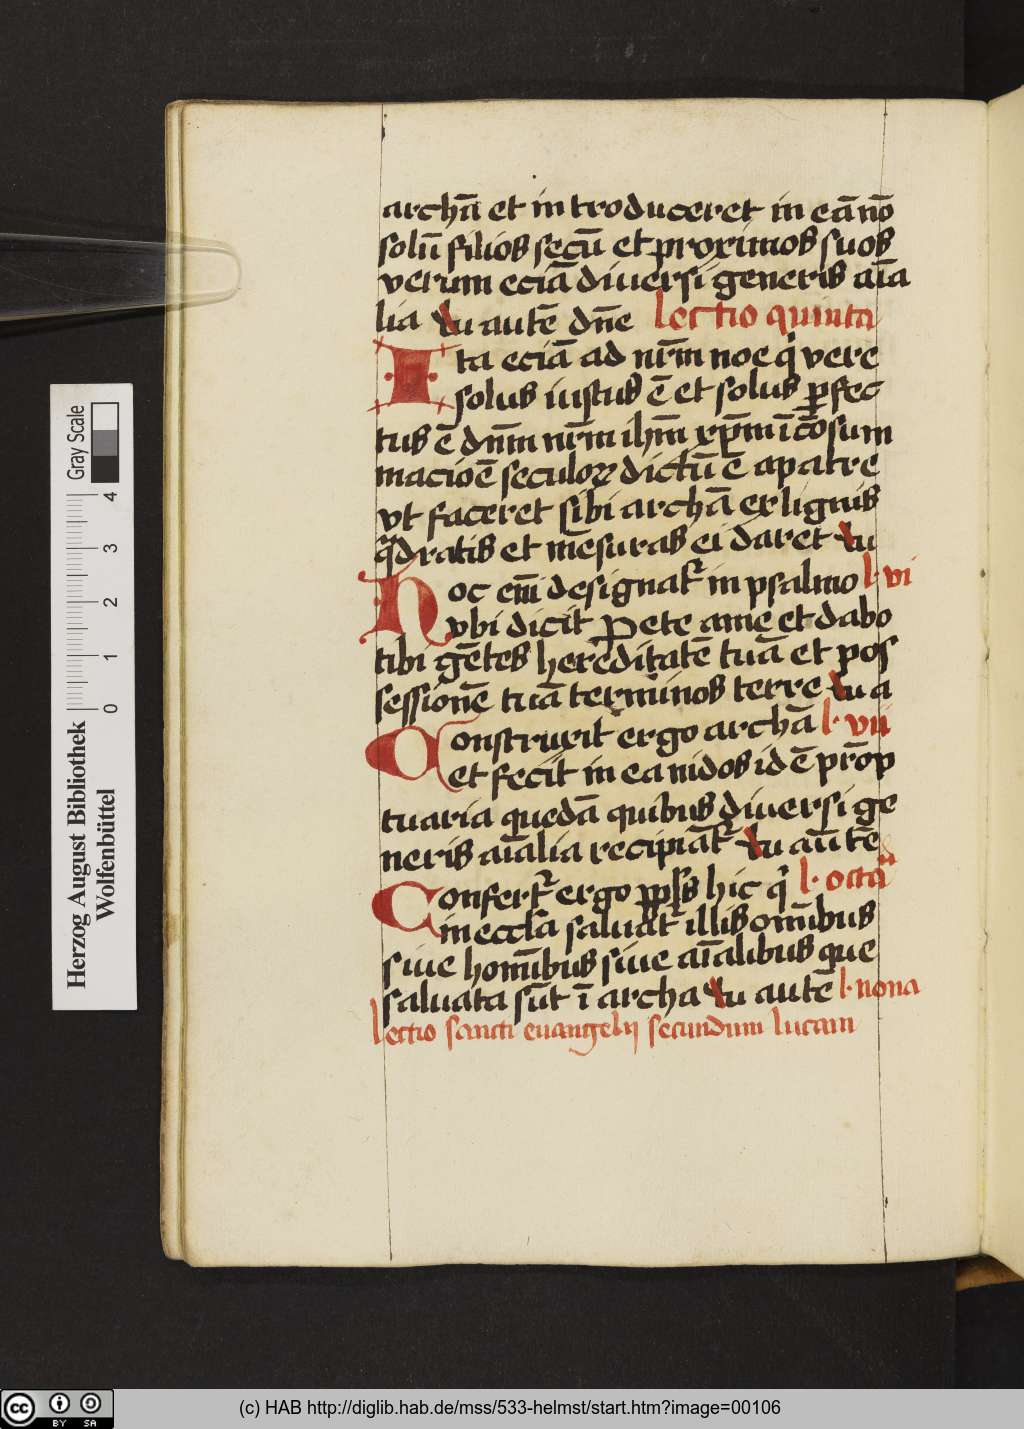 archā et introduceret in eā nō
solū filios secū et proximos suos
verum eciā diuersi generis aīa
lia tu autē dn̄e lectio quinta
Ita eciā ad nr̄m noe qͥ vere
solus iustus ē et solus ꝑfec
tus ē dn̄m nr̄m ihm̄ xp̄m ī cōsum
macioē seculoꝝ dictū ē a patre
vt faceret sibi archā ex lignis
qͣdratis et mēsuras ei daret tu
Hoc em̄ designat᷑ in psalmo l· vi
vbi dicit Pete a me et dabo
tibi gētes hereditatē tuā et pos
sessionē tuā terminos terre tu a
Construxit ergo archā l· vii
et fecit in ea nidos id ē prōp
tuaria quedā quibus diuersi ge
neris aīalia recipiāt᷑ tu autē
Confert᷑ ergo pp̄ls hic qͥ l· octaͣ
in eccl̄a saluat᷑ illis omībus
siue homībus siue aīalibus que
saluata sūt ī archa tu autē l· nona
lectio sancti euangelij secundum lucam
Herzog August Bibliothek
Wolfenbüttel
Gray Scale
0 1 2 3 4
cc BY SA
(c) HAB http://diglib.hab.de/mss/533-helmst/start.htm?image=00106